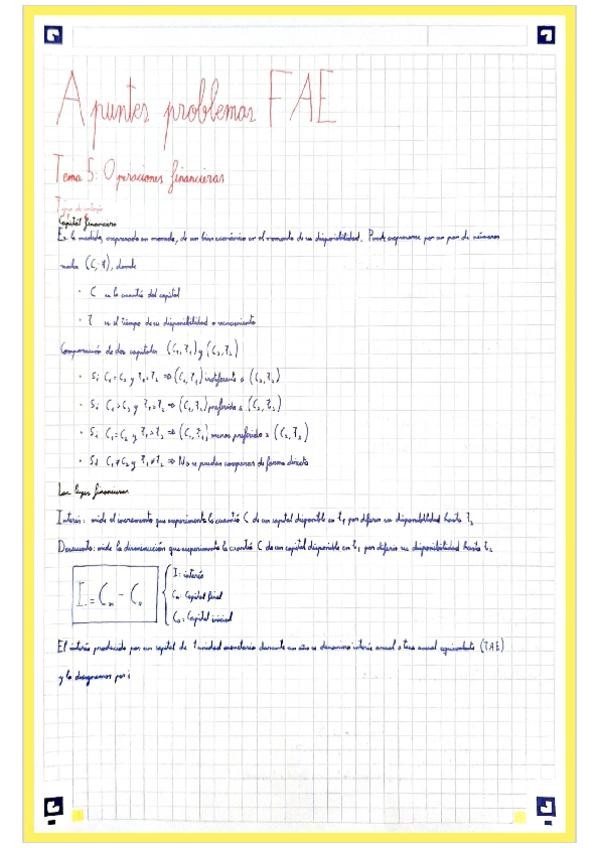 Apuntes problemas FAE
Tema 5: Operaciones financieras
Tipos de interés
Capital financiero
Es la medida, expresada en moneda, de un bien económico en el momento de su disponibilidad. Puede expresarse por un par de números
reales (C, t), donde
· C es la cuantía del capital
· t es el tiempo de su disponibilidad o vencimiento
Comparación de dos capitales (C₁, t₁) y (C₂, t₂)
· Si C₁=C₂ y t₁=t₂ ⇒ (C₁, t₁) indiferente a (C₂, t₂)
· Si C₁>C₂ y t₁=t₂ ⇒ (C₁, t₁) preferido a (C₂, t₂)
· Si C₁=C₂ y t₁>t₂ ⇒ (C₁, t₁) menos preferido a (C₂, t₂)
· Si C₁≠C₂ y t₁≠t₂ ⇒ No se pueden comparar de forma directa
Las leyes financieras
Interés: mide el incremento que experimenta la cuantía C de un capital disponible en t₁ por diferir su disponibilidad hasta t₂
Descuento: mide la disminución que experimenta la cuantía C de un capital disponible en t₁ por diferir su disponibilidad hasta t₂
I = Cₙ - C₀
I: interés
Cₙ: Capital final
C₀: Capital inicial
El interés producido por un capital de 1 unidad monetaria durante un año se denomina interés anual o tasa anual equivalente (TAE)
y lo designamos por i